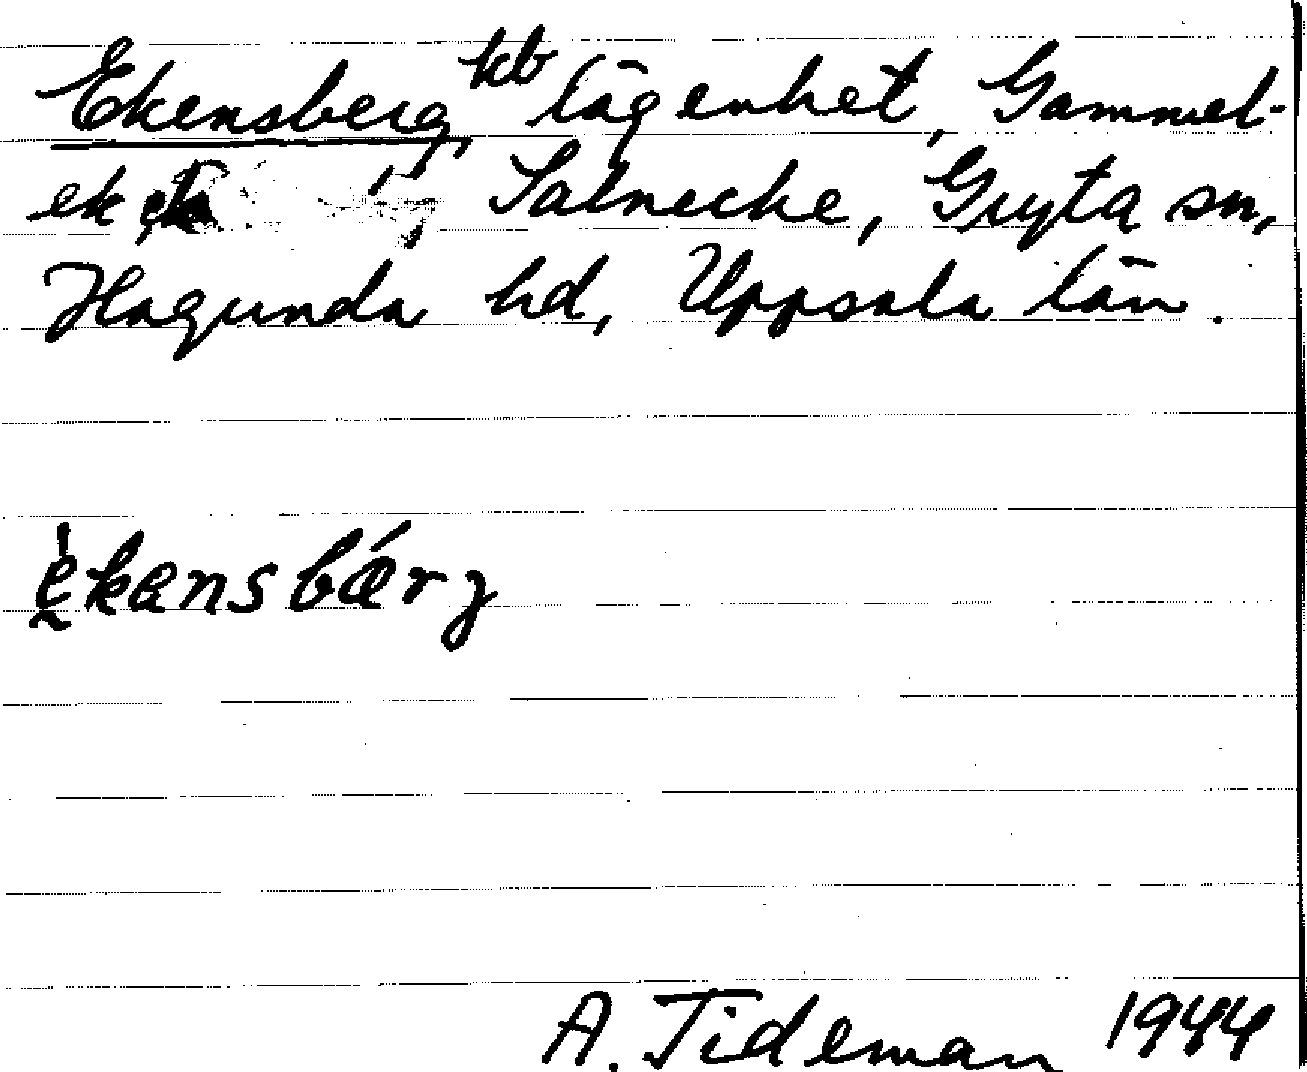 Ekensberg, kb lägenhet, Gammel-
ek Salnecke, Gryta sn,
Hagunda hd, Uppsala län.
èkansbǽrj
A. Tideman 1944